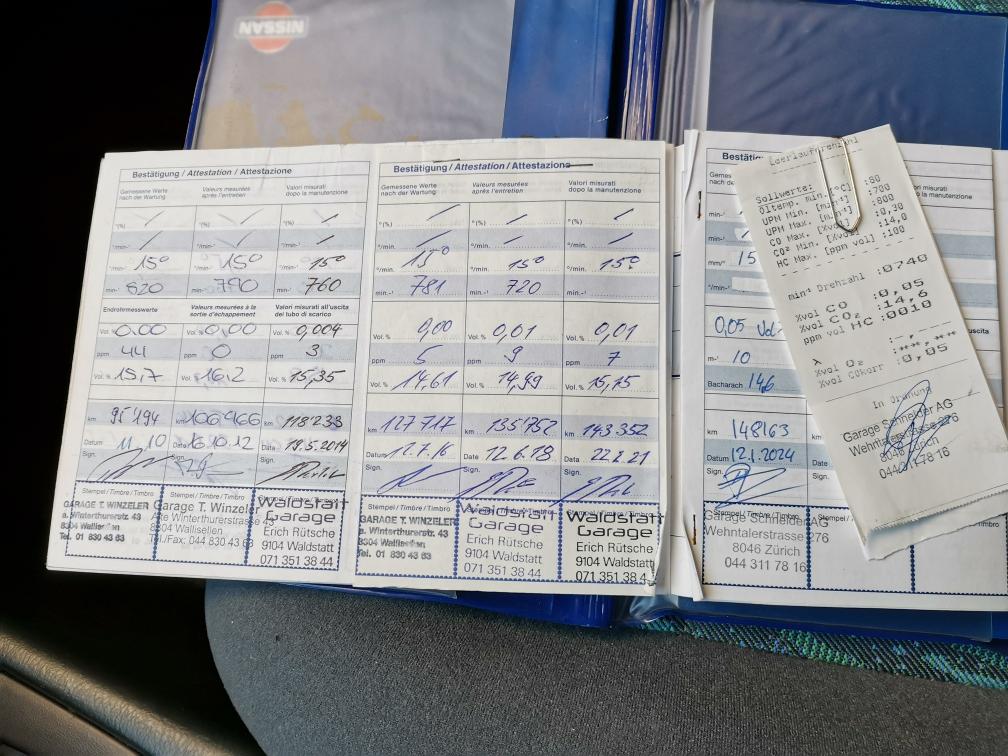 NISSAN
Bestätigung / Attestation / Attestazione
Gemessene Werte nach der Wartung
Valeurs mesurées après l'entretien
Valori misurati dopo la manutenzione
°(%) °(%) °(%)
°/min- °/min- °/min-
15° 15° 15°
min-¹ 820 min-¹ 790 min-¹ 760
Endrohrmesswerte
Valeurs mesurées à la sortie d'échappement
Valori misurati all'uscita del tubo di scarico
Vol. % 0,00 Vol. % 0,00 Vol. % 0,004
ppm 44 ppm 0 ppm 3
Vol. % 15,7 Vol. % 16,2 Vol. % 15,35
km 95'194 km 106'966 km 118'233
Datum 11.10 Date 16.10.12 Data 19.5.2014
Sign. Sign. Sign.
Stempel / Timbre / Timbro Stempel / Timbre / Timbro Stempel / Timbre / Timbro
GARAGE T. WINZELER
a. Winterthurerstr. 43
8304 Wallisellen
Tel. 01 830 43 63
Garage T. Winzeler
Alte Winterthurerstrasse 43
8304 Wallisellen
Tel./Fax: 044 830 43 63
Waldstatt
Garage
Erich Rütsche
9104 Waldstatt
071 351 38 44
Bestätigung / Attestation / Attestazione
Gemessene Werte nach der Wartung
Valeurs mesurées après l'entretien
Valori misurati dopo la manutenzione
°(%) °(%) °(%)
°/min. °/min. °/min.
15° 15° 15°
min.-¹ 781 min.-¹ 720 min.-¹
Vol. % 0,00 Vol. % 0,01 Vol. % 0,01
ppm 5 ppm 9 ppm 7
Vol. % 14,61 Vol. % 14,99 Vol. % 15,15
km 127717 km 135752 km 143.352
Datum 12.7.16 Date 12.6.18 Data 22.2.21
Sign. Sign. Sign.
Stempel / Timbre / Timbro
GARAGE T. WINZELER
a. Winterthurerstr. 43
8304 Wallisellen
Tel. 01 830 43 63
Waldstatt
Garage
Erich Rütsche
9104 Waldstatt
071 351 38 44
Waldstatt
Garage
Erich Rütsche
9104 Waldstatt
071 351 38 44
Gemessene
nach der
misurati
manutenzione
min-¹
mm/° 15
°/min-¹
0,05 Vol.
m-¹ 10
Bacharach 14,6
km 148163
Datum 12.1.2024 Date
Sign. Sign.
Garage Schneider AG
Wehntalerstrasse 276
8046 Zürich
044 311 78 16
Leerlaufdrehzahl
Sollwerte:
Öltemp. min. [°C] :50
UPM Min. [min⁻¹] :700
UPM Max. [min⁻¹] :800
CO Max. [%vol] :0,30
CO² Min. [%vol] :14,0
HC Max. [ppm vol] :100
min⁻¹ Drehzahl :0740
%vol CO :0,05
%vol CO₂ :14,6
ppm vol HC :0010
λ :-,---
%vol O₂ :**,**
%vol COkorr :0,05
In Ordnung
Garage Schneider AG
Wehntalerstrasse 276
8046 Zürich
044 311 78 16